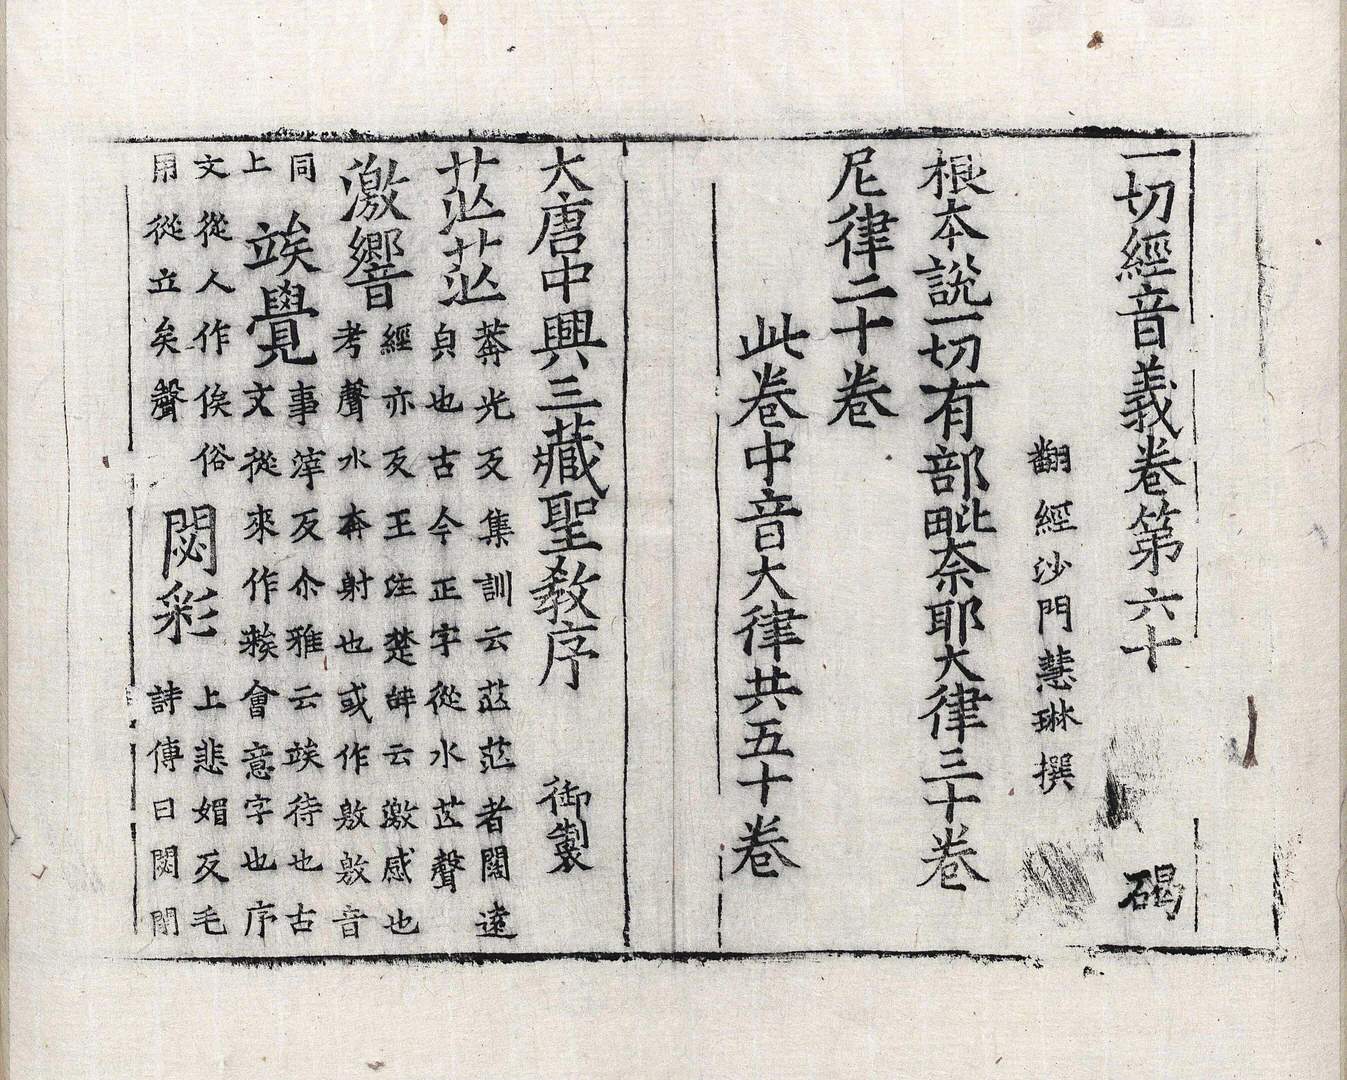 一切經音義卷第六十 碣
翻經沙門慧琳撰
根本說一切有部毗奈耶大律三十卷
尼律二十卷
此卷中音大律共五十卷
大唐中興三藏聖教序 御製
茫茫
莽光反集訓云茫茫者闊遠
皃也古今正字從水芒聲
激響
經亦反王注楚辝云激感也
考聲水奔射也或作敫敫音
同
上
竢覺
事滓反尒雅云竢待也古
文從來作𥏳會意字也序
文從人作俟俗
用從立矣聲
閟彩
上悲媚反毛
詩傳曰閟閇